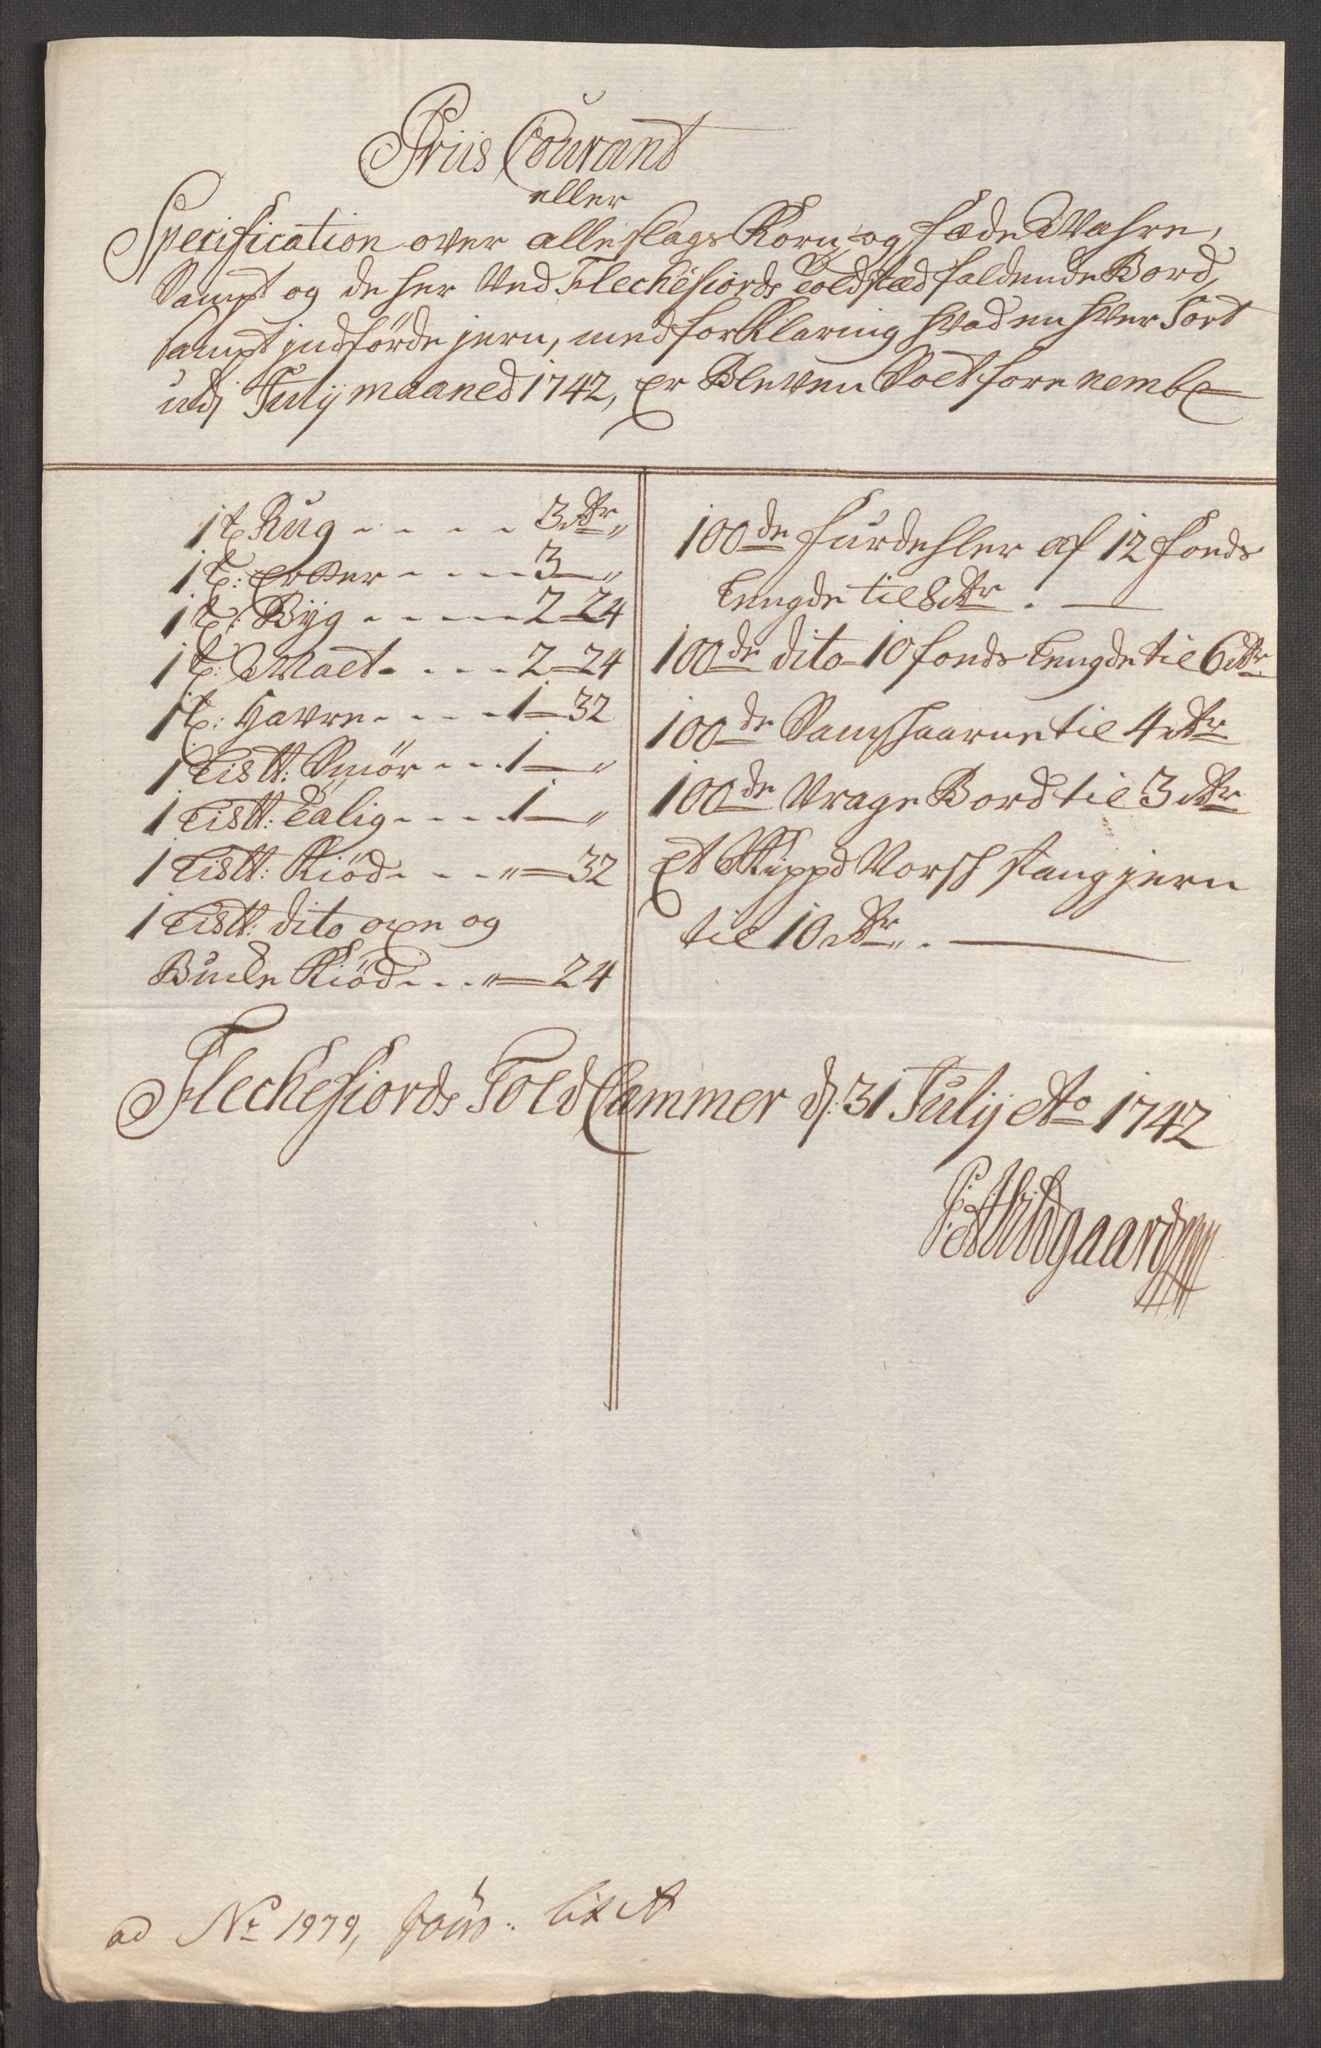 Priis Courant
eller
Specification over alle slags Korn, og fæde Wahre,
Sampt og de her Ved Flechefiords Toldstæd faldende Bord,
sampt jndförde jern, med forklaring hvad en hver Sort
udj Julij maaned 1742, er Bleven Soelt fore nembl
1 t. Rug - - - - 3 dr „
1 t: erter - - - - 3 — „
1 t: Byg - - - - 2 — 24
1 t: Malt - - - - 2 — 24
1 t: Havre - - - - 1 — 32
1 Listt: Smör - - - 1 — „
1 Listt: Talig - - - - 1 — „
1 Listt: Kiöd - - - „ — 32
1 Listt: dito oxe og
Bucke Kiöd - - - „ — 24
100de furdehler af 12 fonds
Lengde til 8 dr . —
100de dito 10 fonds Lengde til 6 dr
100de til 4 dr
100de Vrage Bord til 3 dr
Et Skippd Norsk stang jern
til 10 dr „ . —
Flechefiords Told Cammer d: 31 Julij Ao 1742
P: Abildgaard
ad No 1979, lit A